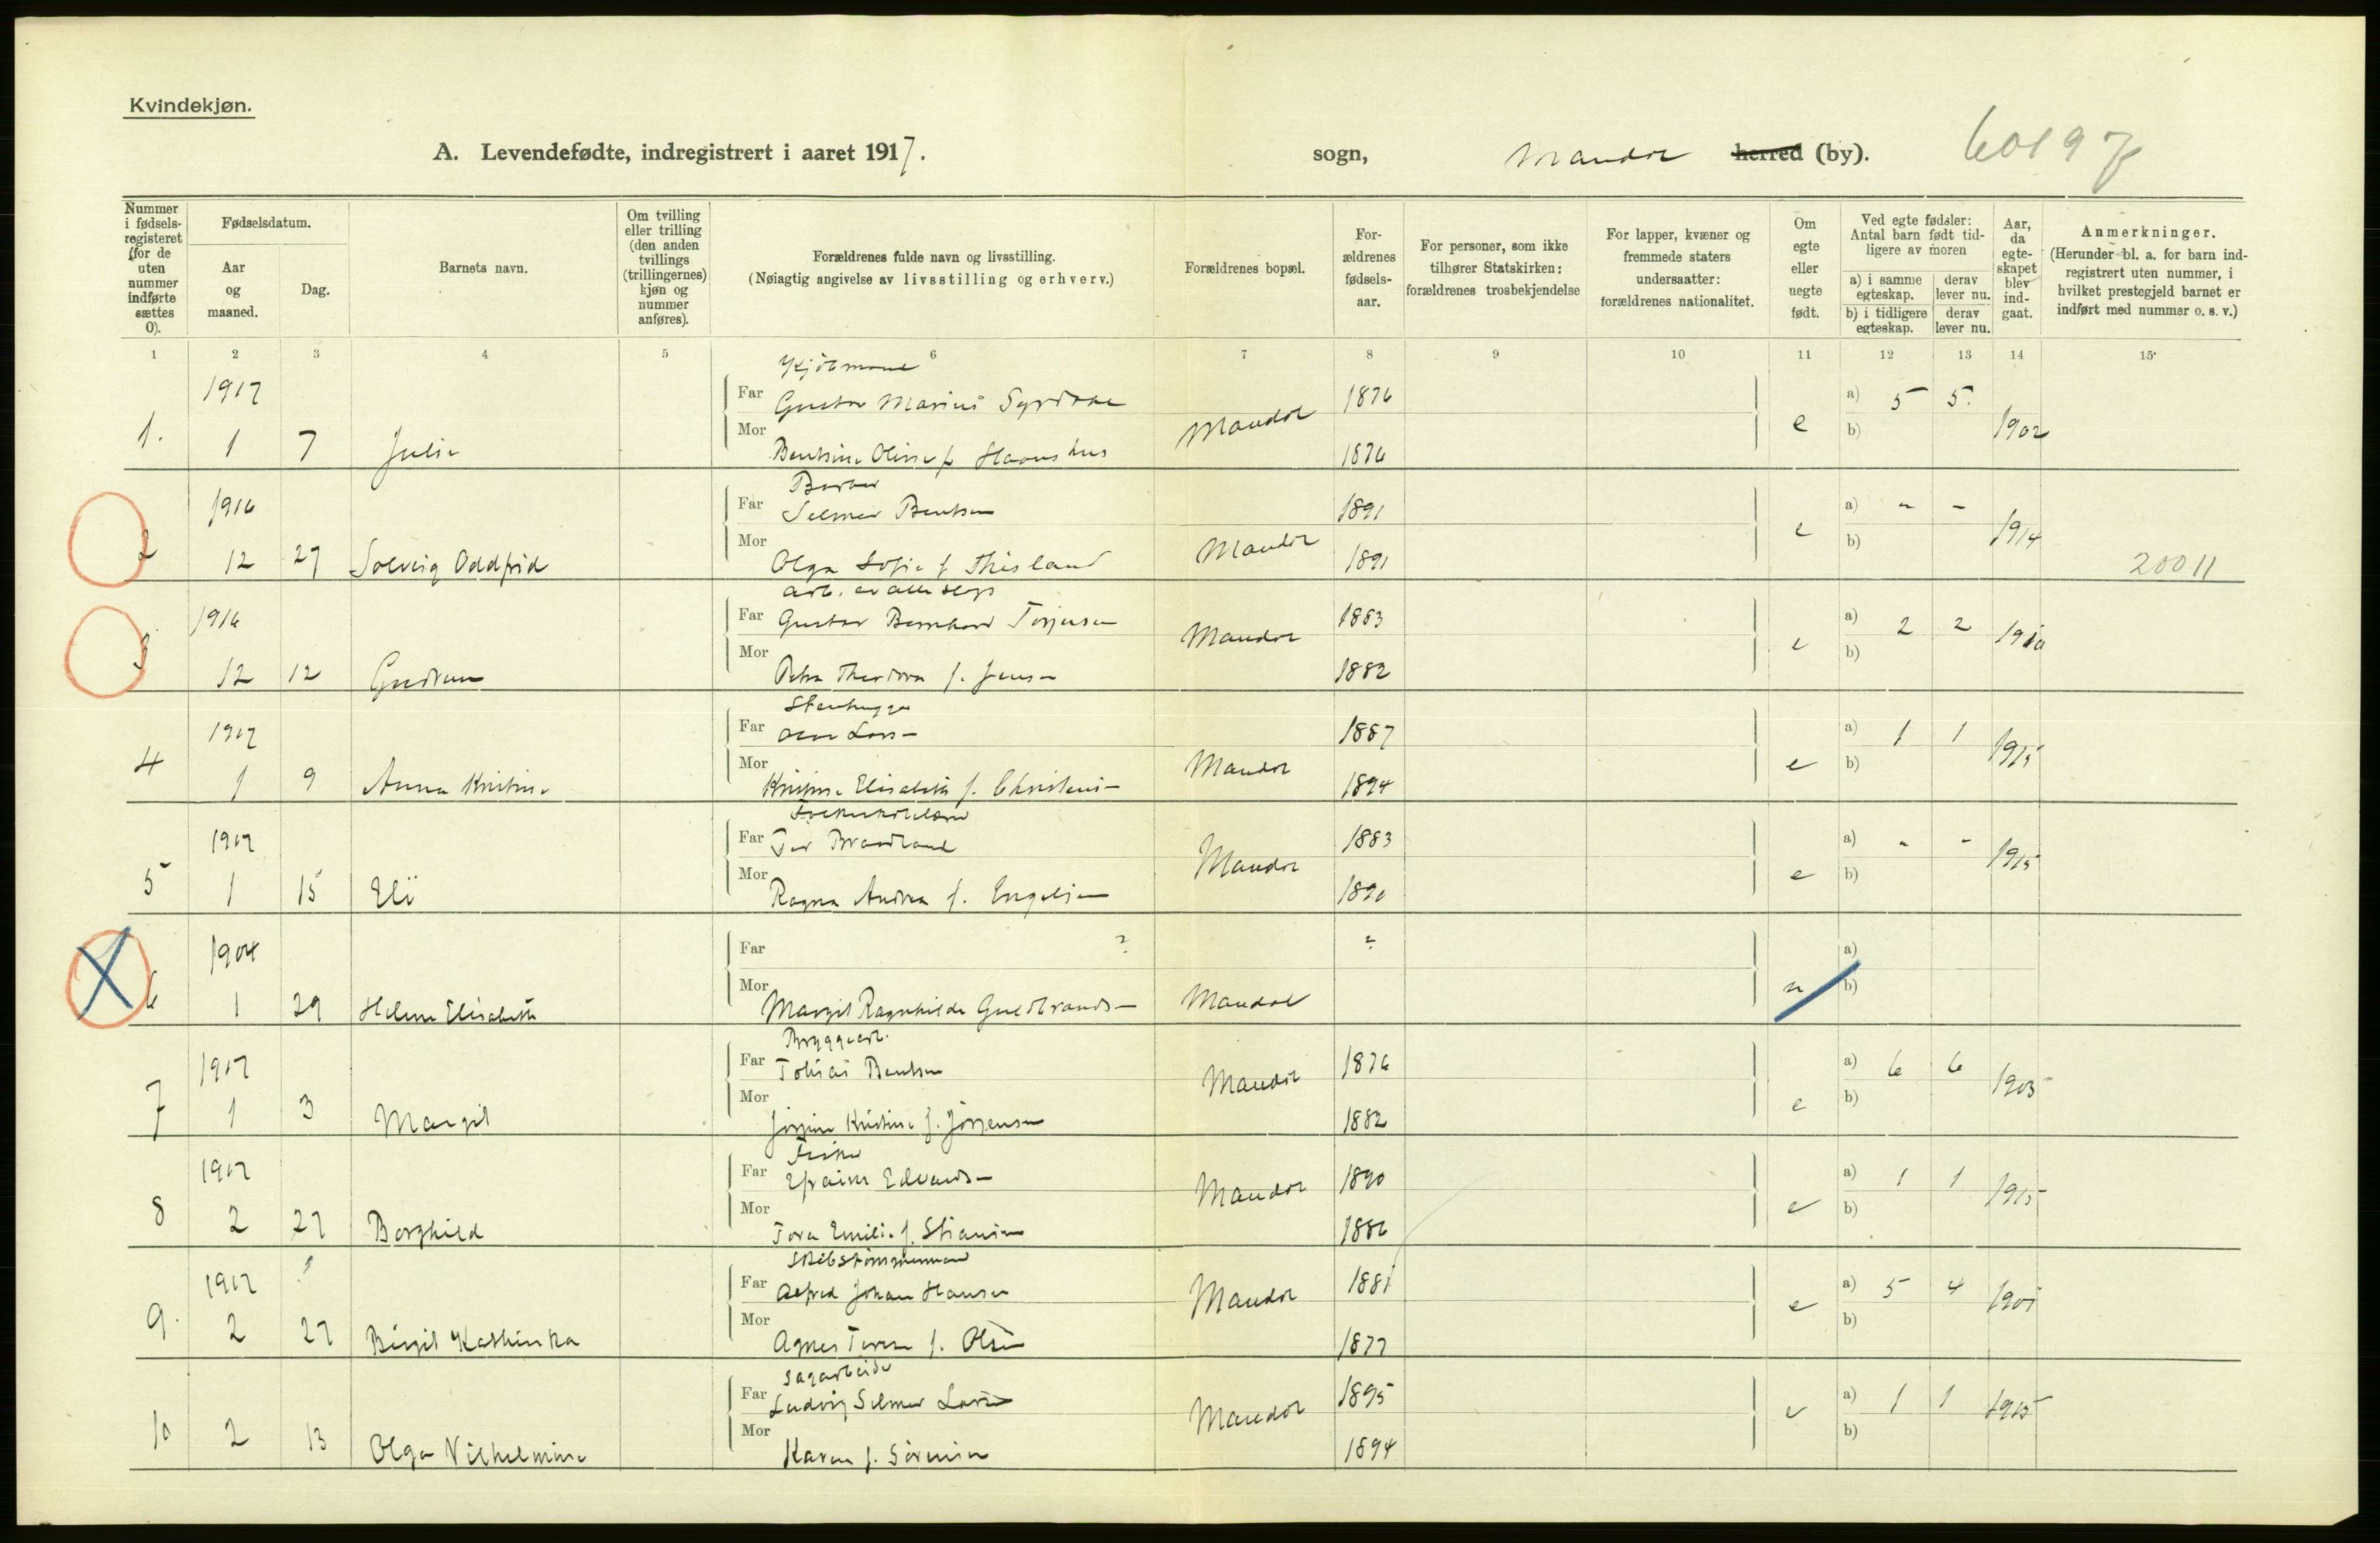 Kvindekjøn.
A. Levendefødte, indregistrert i aaret 1917. sogn, Mandal herred (by). 60197
Nummer i fødsels-registeret (for de uten nummer indførte sættes 0).
Fødselsdatum.
Aar og maaned.
Dag.
Barnets navn.
Om tvilling eller trilling (den anden tvillings (trillingernes) kjøn og nummer anføres).
Forældrenes fulde navn og livsstilling.
(Nøiagtig angivelse av livsstilling og erhverv.)
Forældrenes bopæl.
For-ældrenes fødsels-aar.
For personer, som ikke tilhører Statskirken: forældrenes trosbekjendelse
For lapper, kvæner og fremmede staters undersaatter: forældrenes nationalitet.
Om egte eller uegte født.
Ved egte fødsler: Antal barn født tid-ligere av moren
a) i samme egteskap. derav lever nu.
b) i tidligere egteskap. derav lever nu.
Aar, da egte-skapet blev ind-gaat.
Anmerkninger.
(Herunder bl. a. for barn ind-registrert uten nummer, i hvilket prestegjeld barnet er indført med nummer o. s. v.)
1 2 3 4 5 6 7 8 9 10 11 12 13 14 15
Kjøbmand
1917 Far Gustav Marius 1876 a) 5 5
1. 1 7 Julie Mor Bentsine Oline f. Mandal 1876 e b) 1902
Barber
1916 Far Selmer Bentsen 1891 a) - -
2 12 27 Solveig Oddfrid Mor Olga Sofie f. Thisland Mandal 1891 e b) 1914 20011
arb. av alle slags
1916 Far Gustav Bernhard Torjusen 1883 a) 2 2
3 12 12 Gudrun Mor Petra Theodora f. Jensen Mandal 1882 e b) 1910
Stenhugger
1917 Far Lars- 1887 a) 1 1
4 1 9 Anna Kristine Mor Kristine Elisabeth f. Christens- Mandal 1894 e b) 1915
1917 Far 1883 a) - -
5 1 15 Eli Mor Ragna Andrea f. Mandal 1890 e b) 1915
1904 Far ? ? a)
6 1 29 Helene Elisabeth Mor Margit Ragnhilde Guldbrands- Mandal u b)
Bryggearb.
1917 Far Tobias Bentsen 1876 a) 6 6
7 1 3 Margit Mor Kristine f. Jörgensen Mandal 1882 e b) 1903
Fisker
1917 Far Efraim Edvards- 1890 a) 1 1
8 2 27 Borghild Mor Tora Emilie f. Mandal 1886 e b) 1915
Skibstømmermand
1917 Far Alfred Johan Hansen 1881 a) 5 4
9. 2 27 Birgit Kathinka Mor Agnes f. Olsen Mandal 1877 e b) 1901
Sagarbeider
Far Ludvig Selmer Larsen 1895 a) 1 1
10 2 13 Olga Vilhelmine Mor Karen f. Sörensen Mandal 1894 e b) 1915